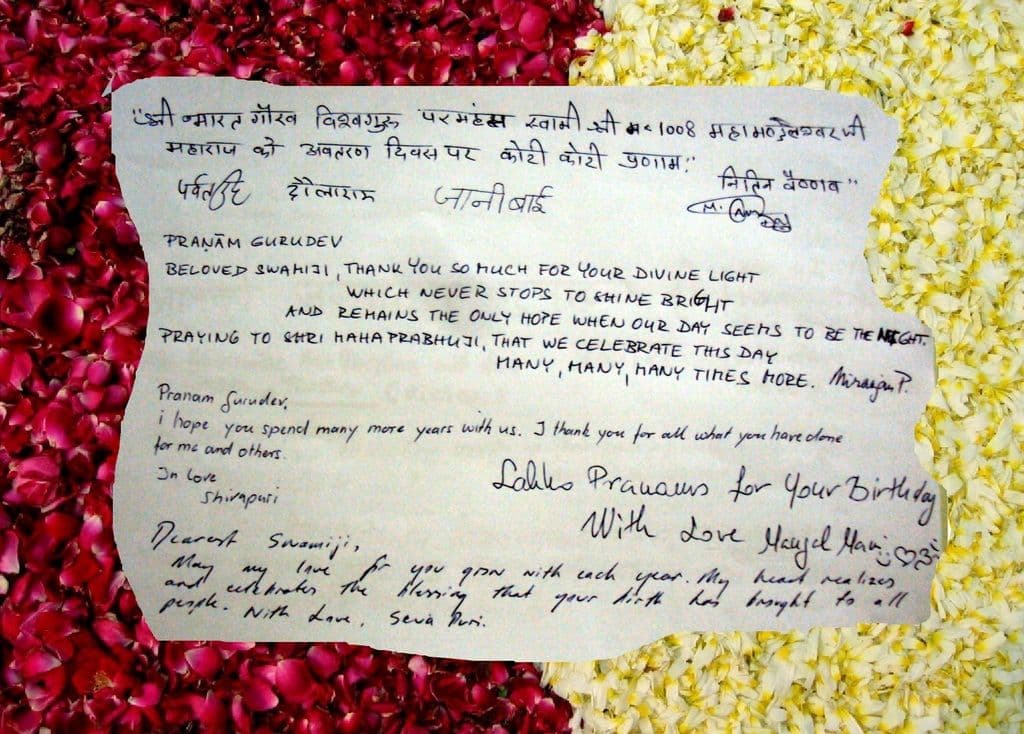 "श्री भारत गौरव विश्वगुरू परमहंस स्वामी श्री म॰ 1008 महामण्डलेश्वर जी
महाराज को अवतरण दिवस पर कोटी कोटी प्रणाम:
नितिन वैष्णव"
दौलाराम जानीबाई
PRAṆĀM GURUDEV
BELOVED SWAMIJI, THANK YOU SO MUCH FOR YOUR DIVINE LIGHT
WHICH NEVER STOPS TO SHINE BRIGHT
AND REMAINS THE ONLY HOPE WHEN OUR DAY SEEMS TO BE THE NIGHT.
PRAYING TO SHRI MAHAPRABHUJI, THAT WE CELEBRATE THIS DAY
MANY, MANY, MANY TIMES MORE. Niranjan P.
Pranam Gurudev,
i hope you spend many more years with us. I thank you for all what you have done
for me and others.
In Love
Shivapuri
Lakho Pranams for Your Birthday
With Love Mangal Mani
Dearest Swamiji,
May my love for you grow with each year. My heart realizes
and celebrates the blessing that your birth has brought to all
people. With Love, Seva Puri.